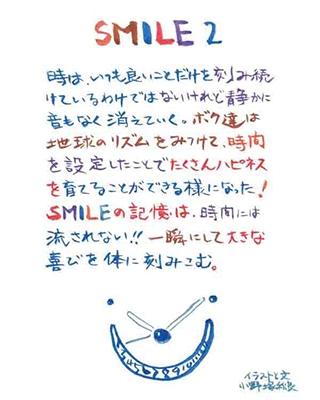 SMILE 2
時は、いつも良いことだけを刻み続
けているわけではないけれど静かに
音もなく消えていく。ボク達は
地球のリズムをみつけて、時間
を設定したことでたくさんハピネス
を育てることができる様になった!
SMILEの記憶は、時間には
流されない!! 一瞬にして大きな
喜びを体に刻みこむ。
イラストと文
小野塚